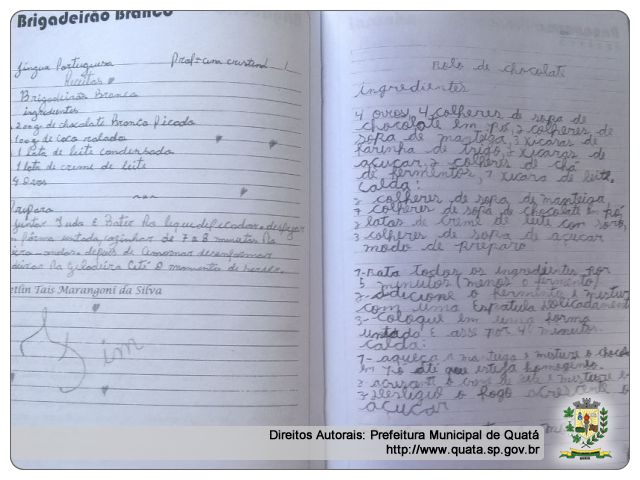 Brigadeirão Branco
Língua Portuguesa
Receitas
Brigadeirão Branco
ingredientes
200g de chocolate Branco Picado
100g de coco ralado
1 lata de leite condensado
1 lata de creme de leite
4 ovos
Preparo
Juntar Tudo E Bater No liquedificador despejar
forma untada, cozinhar de 7 a 8 minutos No
depois de Amornar desenformar
Na Geladeira Até O momento de
Tais Marangoni da Silva
Fim
Bolo de chocolate
ingredientes
4 ovos, 4 colheres de sopa de
chocolate em pó, 2 colheres de
sopa de manteiga, 3 xicaras de
farinha de trigo, 2 xicaras de
açucar, 2 colheres de chá
de fermentos, 1 xicara de leite.
calda:
2 colheres de sopa de manteiga,
7 colheres de sopa de chocolate em pó,
2 latas de creme de leite com soro,
3 colheres de sopa de açucar
modo de preparo
1-Bata todos os ingredientes por
5 minutos (menos o fermento)
2-adicione o fermento e misture
com uma Espatula delicadamente
3-coloque em uma forma
untada E asse por 4 minutos.
calda:
1-aqueça a manteiga e misture o chocolate
em pó até que esteja homogenio.
2 acrescente o creme de leite e misture
3 Desligue o fogo acrescente o
açucar
Direitos Autorais: Prefeitura Municipal de Quatá
http://www.quata.sp.gov.br